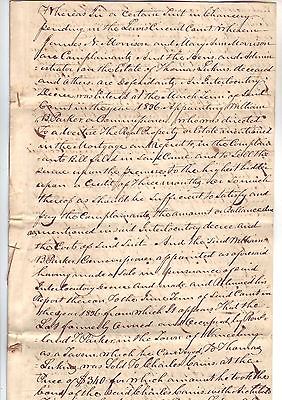 Whereas in a Certain Suit in Chancery
pending in the Lewis Circuit Court Wherein
James N. Morrison and Mary Ann Morrison
are Complainants and the Heirs, and Admin
of the Estate of Thomas deceased
and others are defendants, an Interlocutory
Decree was entered at the March Term of Said
Court in the year 1836 Appointing William
B. Parker a Commissioner, Who was directed
To advertise the Real Property or Estate mentioned
in the Mortgage and refered to, in the Complain
ants Bill filed in Said Court and to Sell the
Same upon the premises, to the highest bidder
upon a Credit of Three months, See so much
thereof as Should be Sufficient to Satisfy and
pay the Complainants, the amount or balance due
mentioned in said Interlocutory decree and
the Costs of said Suit. And the Said William
B. Parker Commissioner appointed as aforesaid
having made a Sale in pursuance of said
Interlocutory decree and made and returned his
Report thereon To the June Term of Said Court in
the year 1836 from which It appears That the
Lot formerly Owned and Occupied by Row
land T. Parker in the Town of
as a Tavern which he Conveyed To Thomas
was Sold To Charles Cains at the
Price of $340 for which amount he took the
bond of the said Charles Cains with